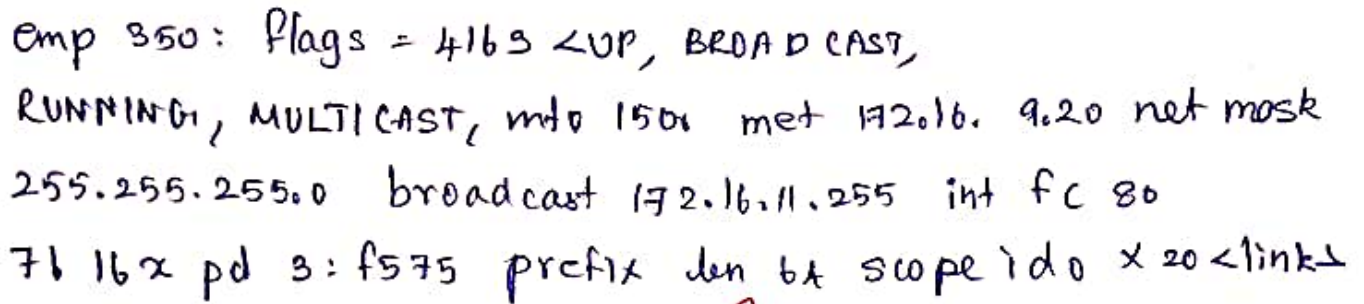 emp 350: flags = 4163 <UP, BROADCAST,
RUNNING, MULTICAST, mto 1500 met 172.16. 9.20 net mosk
255.255.255.0 broadcast 172.16.11.255 int fc 80
71 16x pd 3: f575 prefix len 64 scope ido x 20 <link>